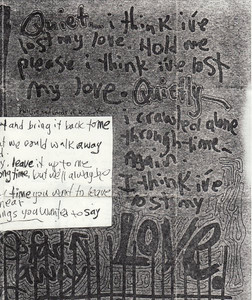 Quiet... i think i've
lost my love. Hold me
please i think i've lost
my love. Quietly
i crawled alone
through time
Again
I think i've
lost my
LOVE
and bring it back to me
we could walk away
leave it up to me
time, but we'll always be
time you want to leave
near
things you wanted to say
away